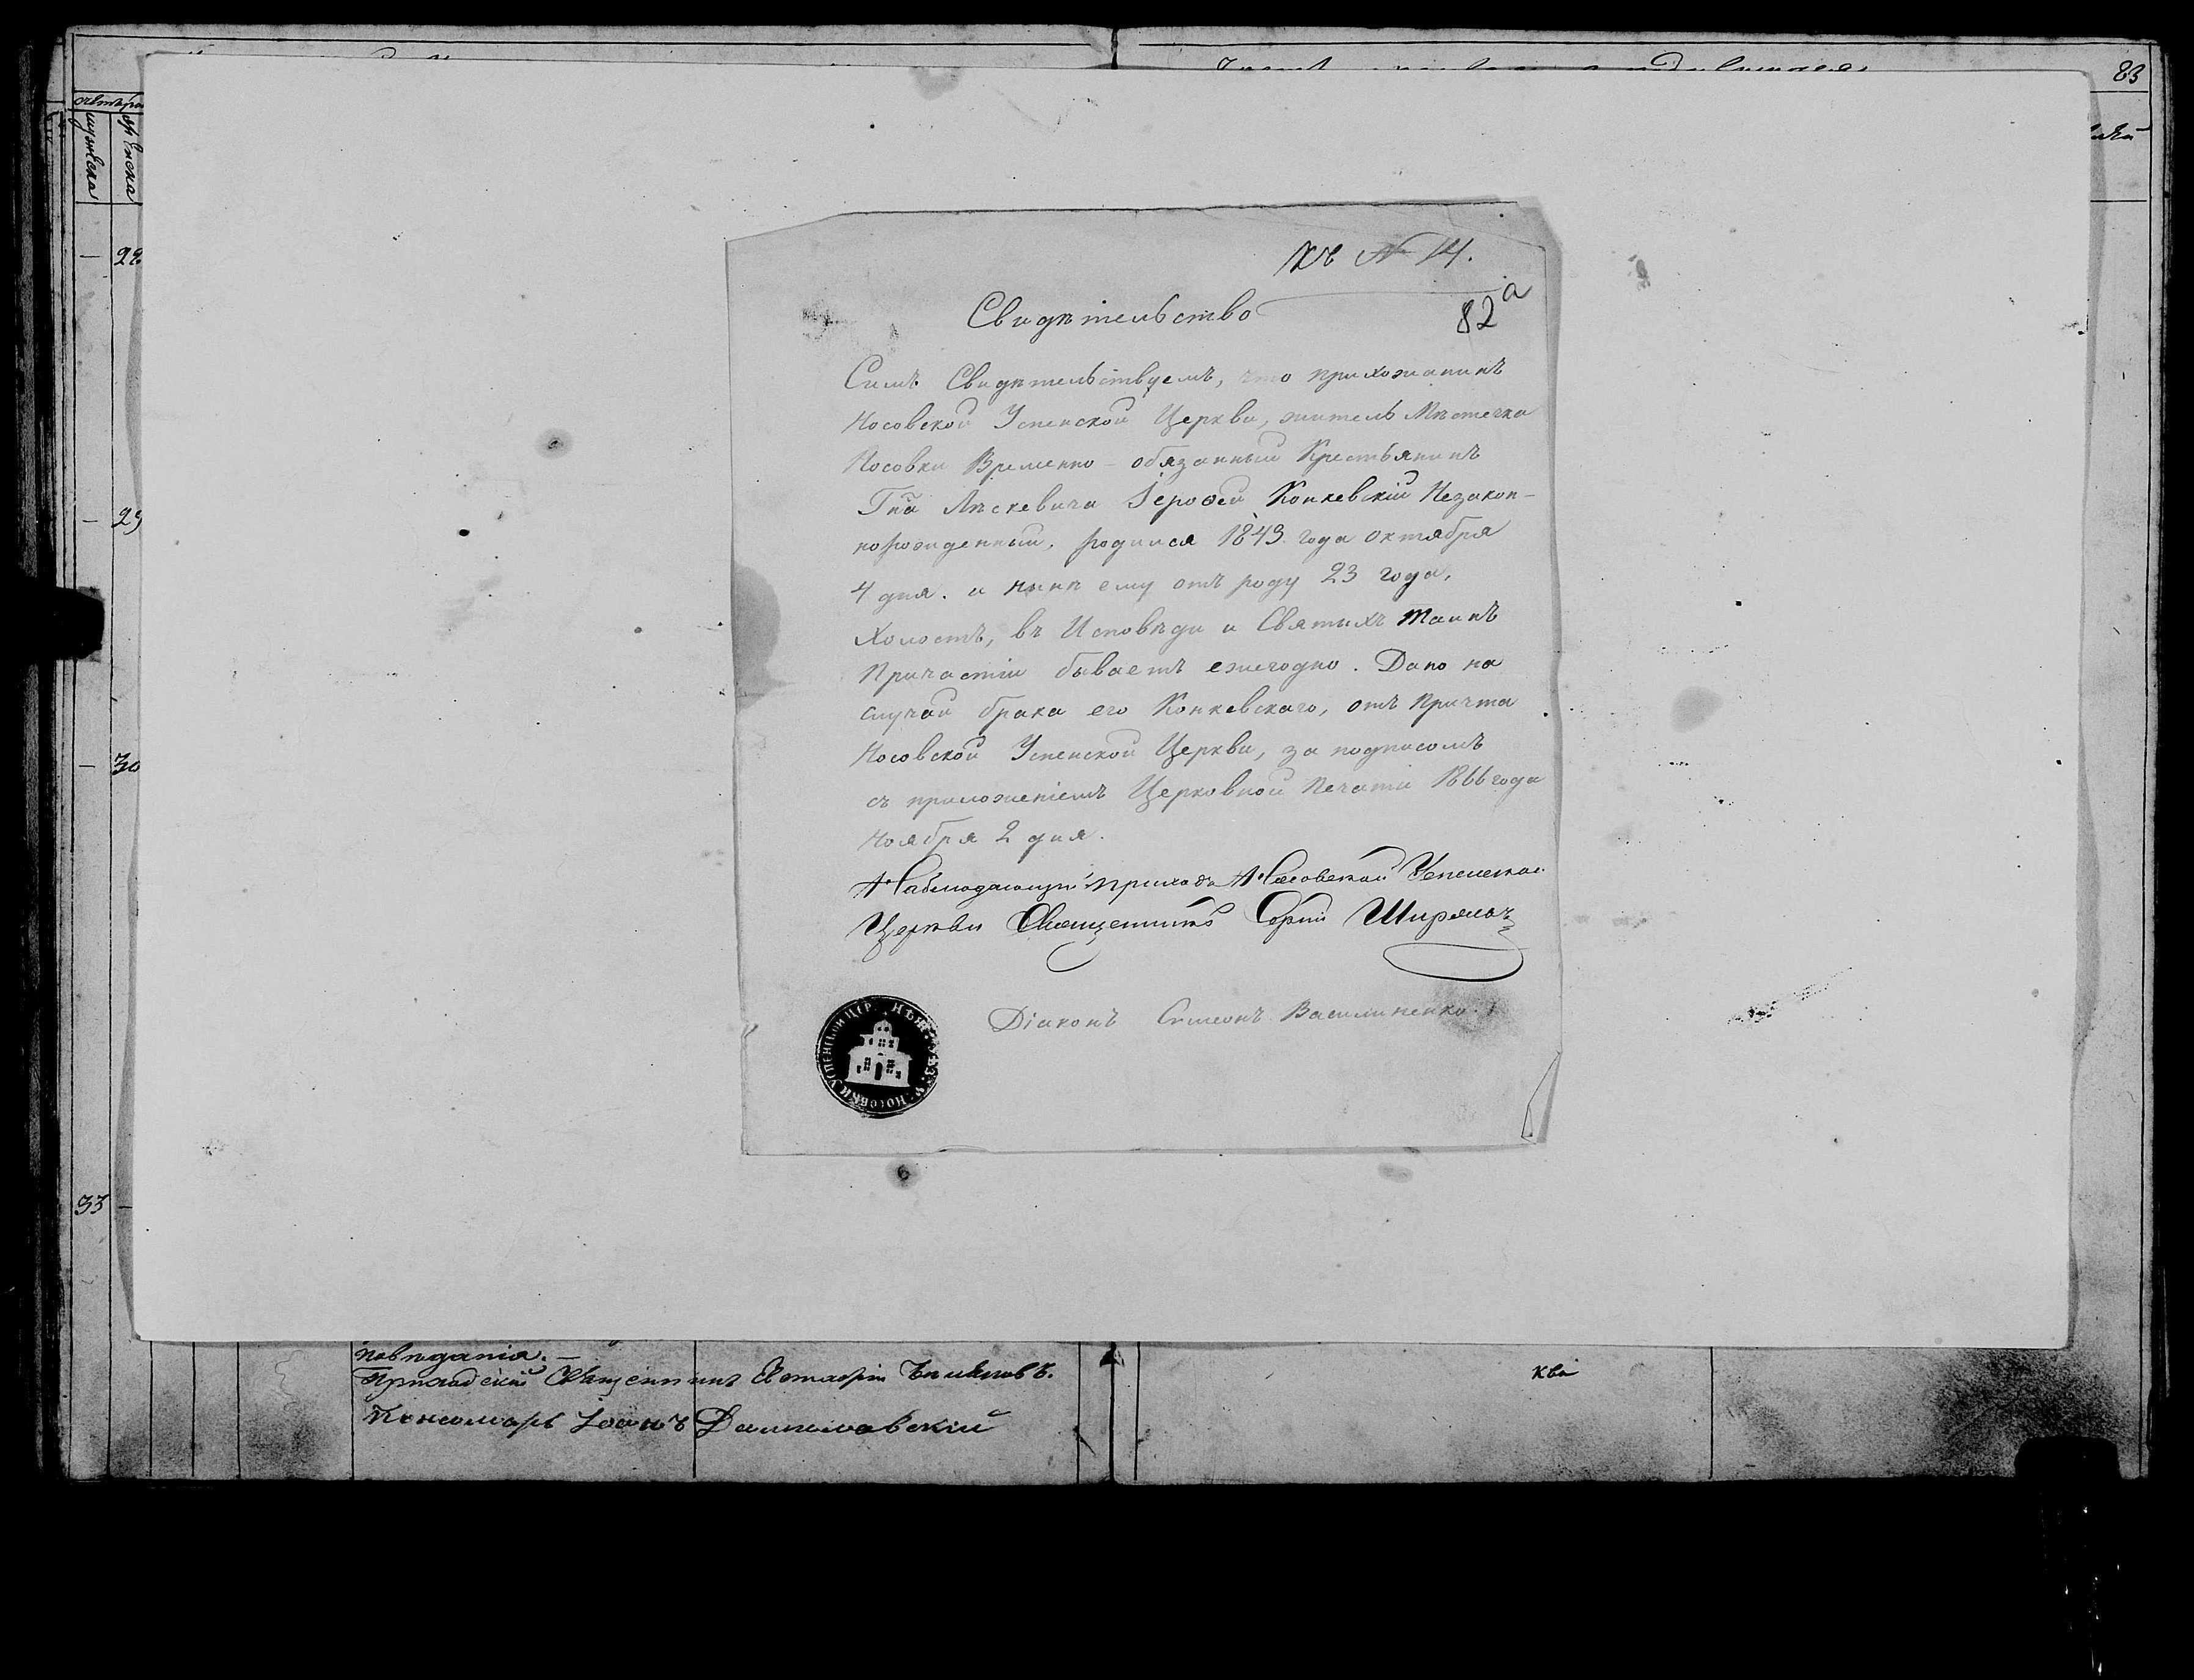 83
29
30
33
Къ № 14.
82 а
Свидѣтельство
Симъ Свидѣтельствуемъ, что прихожанинъ
Носовской Успенской Церкви, житель Мѣстечка
Носовки Временно-обязанный Крестьянинъ
Гна Лѣскевича Іерофей Конкевскій Незакон-
норожденный, родился 1843 года октября
4 дня. и нынѣ ему отъ роду 23 года,
Холостъ, въ Исповѣди и Святыхъ Таинъ
Причастіи бываетъ ежегодно. Дано на
случай брака его Конкевскаго, отъ Причта
Носовской Успенской Церкви, за подписомъ
съ приложеніемъ Церковной Печати 1866 года
Ноября 2 дня.
Наблюдающій приходъ Носовской Успенской
Церкви Священникъ Сергій
Діаконъ Симеонъ Василиненко
НѢЖ. УѢЗ. М. НОСОВКИ УСПЕНСКОЙ ЦЕР.
Приходскій Священникъ
Пономарь Іоаннъ Даниловскій